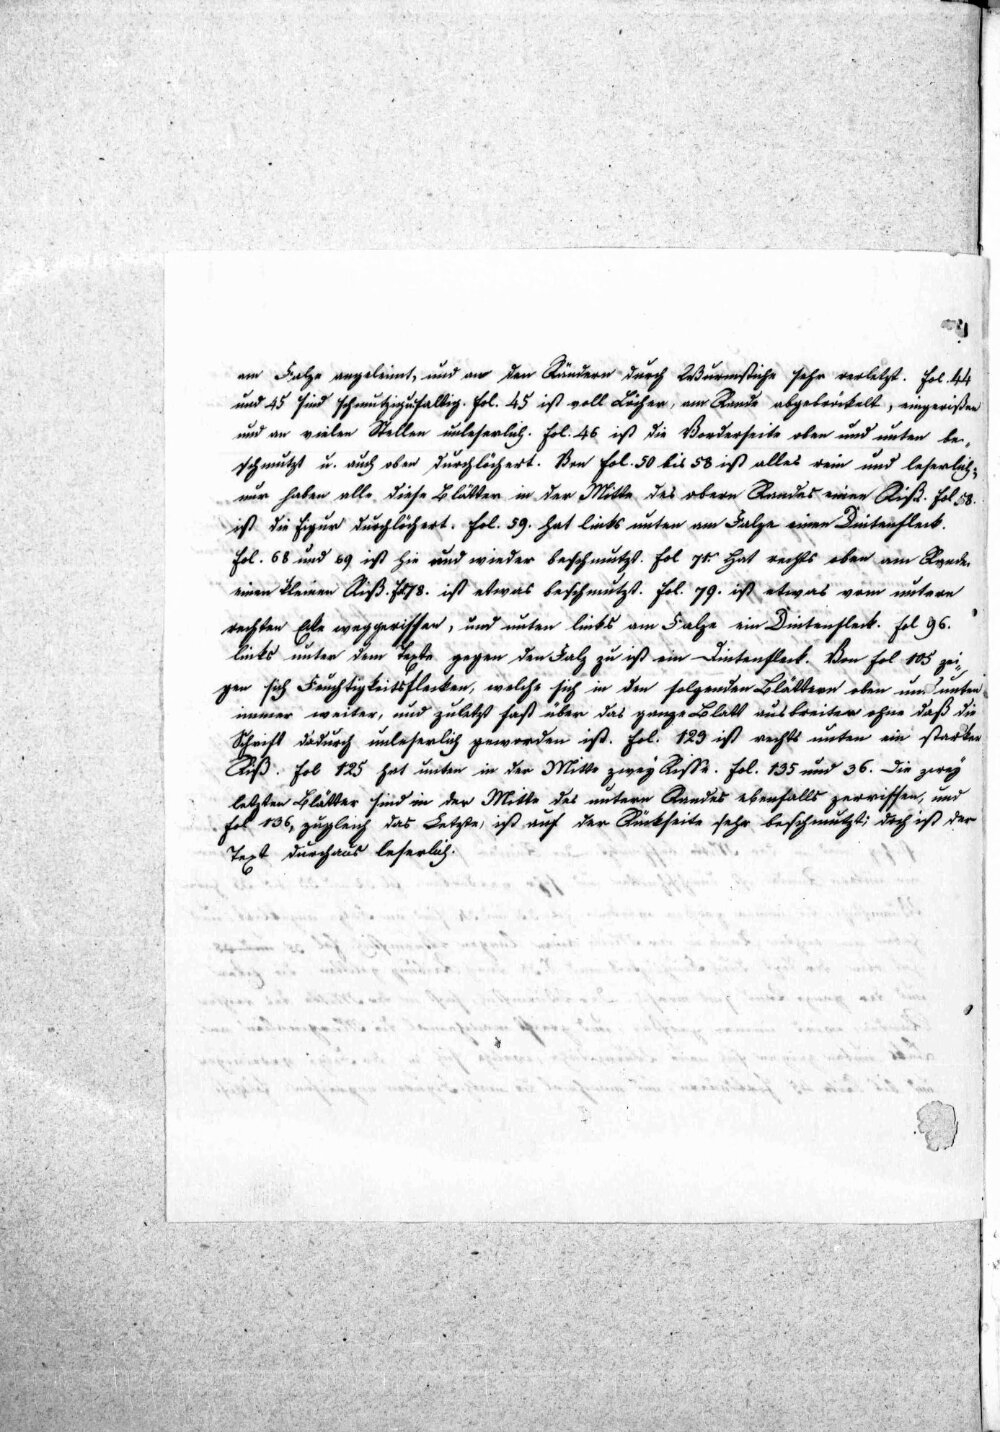 am Falze angeleimt, und an den Rändern durch Wurmstiche sehr verletzt. Fol. 44
und 45 sind schmutzig u. faltig. Fol. 45 ist voll Löcher, am Rande abgebröckelt, eingerißen
und an vielen Stellen unleserlich. Fol. 46 ist die Vorderseite oben und unten be-
schmutzt u. auch oben durchlöchert. Von Fol. 50 bis 58 ist alles rein und leserlich,
nur haben alle diese Blätter in der Mitte des obern Randes einen Riß. Fol 58.
ist die Figur durchlöchert. Fol. 59. hat links unten am Falze einen Dintenfleck.
Fol. 68 und 69 ist hie und wieder beschmutzt. Fol hat rechts oben am Rande
einen kleinen Riß. F. 78. ist etwas beschmutzt. Fol. 79. ist etwas vom untern
rechten Ecke weggerissen, und unten links am Falze ein Dintenfleck. Fol 96.
links unter dem Texte gegen den Falz zu ist ein Dintenfleck. Von Fol 105 zei-
gen sich Feuchtigkeitsflecken, welche sich in den folgenden Blättern oben und unten
immer weiter, und zuletzt fast über das ganze Blatt ausbreiten ohne daß die
Schrift dadurch unleserlich geworden ist. Fol. 123 ist rechts unten ein starker
Riß. Fol 125 hat unten in der Mitte zwey Risse. Fol. 135 und 36. Die zwey
letzten Blätter sind in der Mitte des untern Randes ebenfalls zerrissen, und
Fol 136, zugleich das Letzte, ist auf der Rückseite sehr beschmutzt; doch ist der
Text durchaus leserlich.